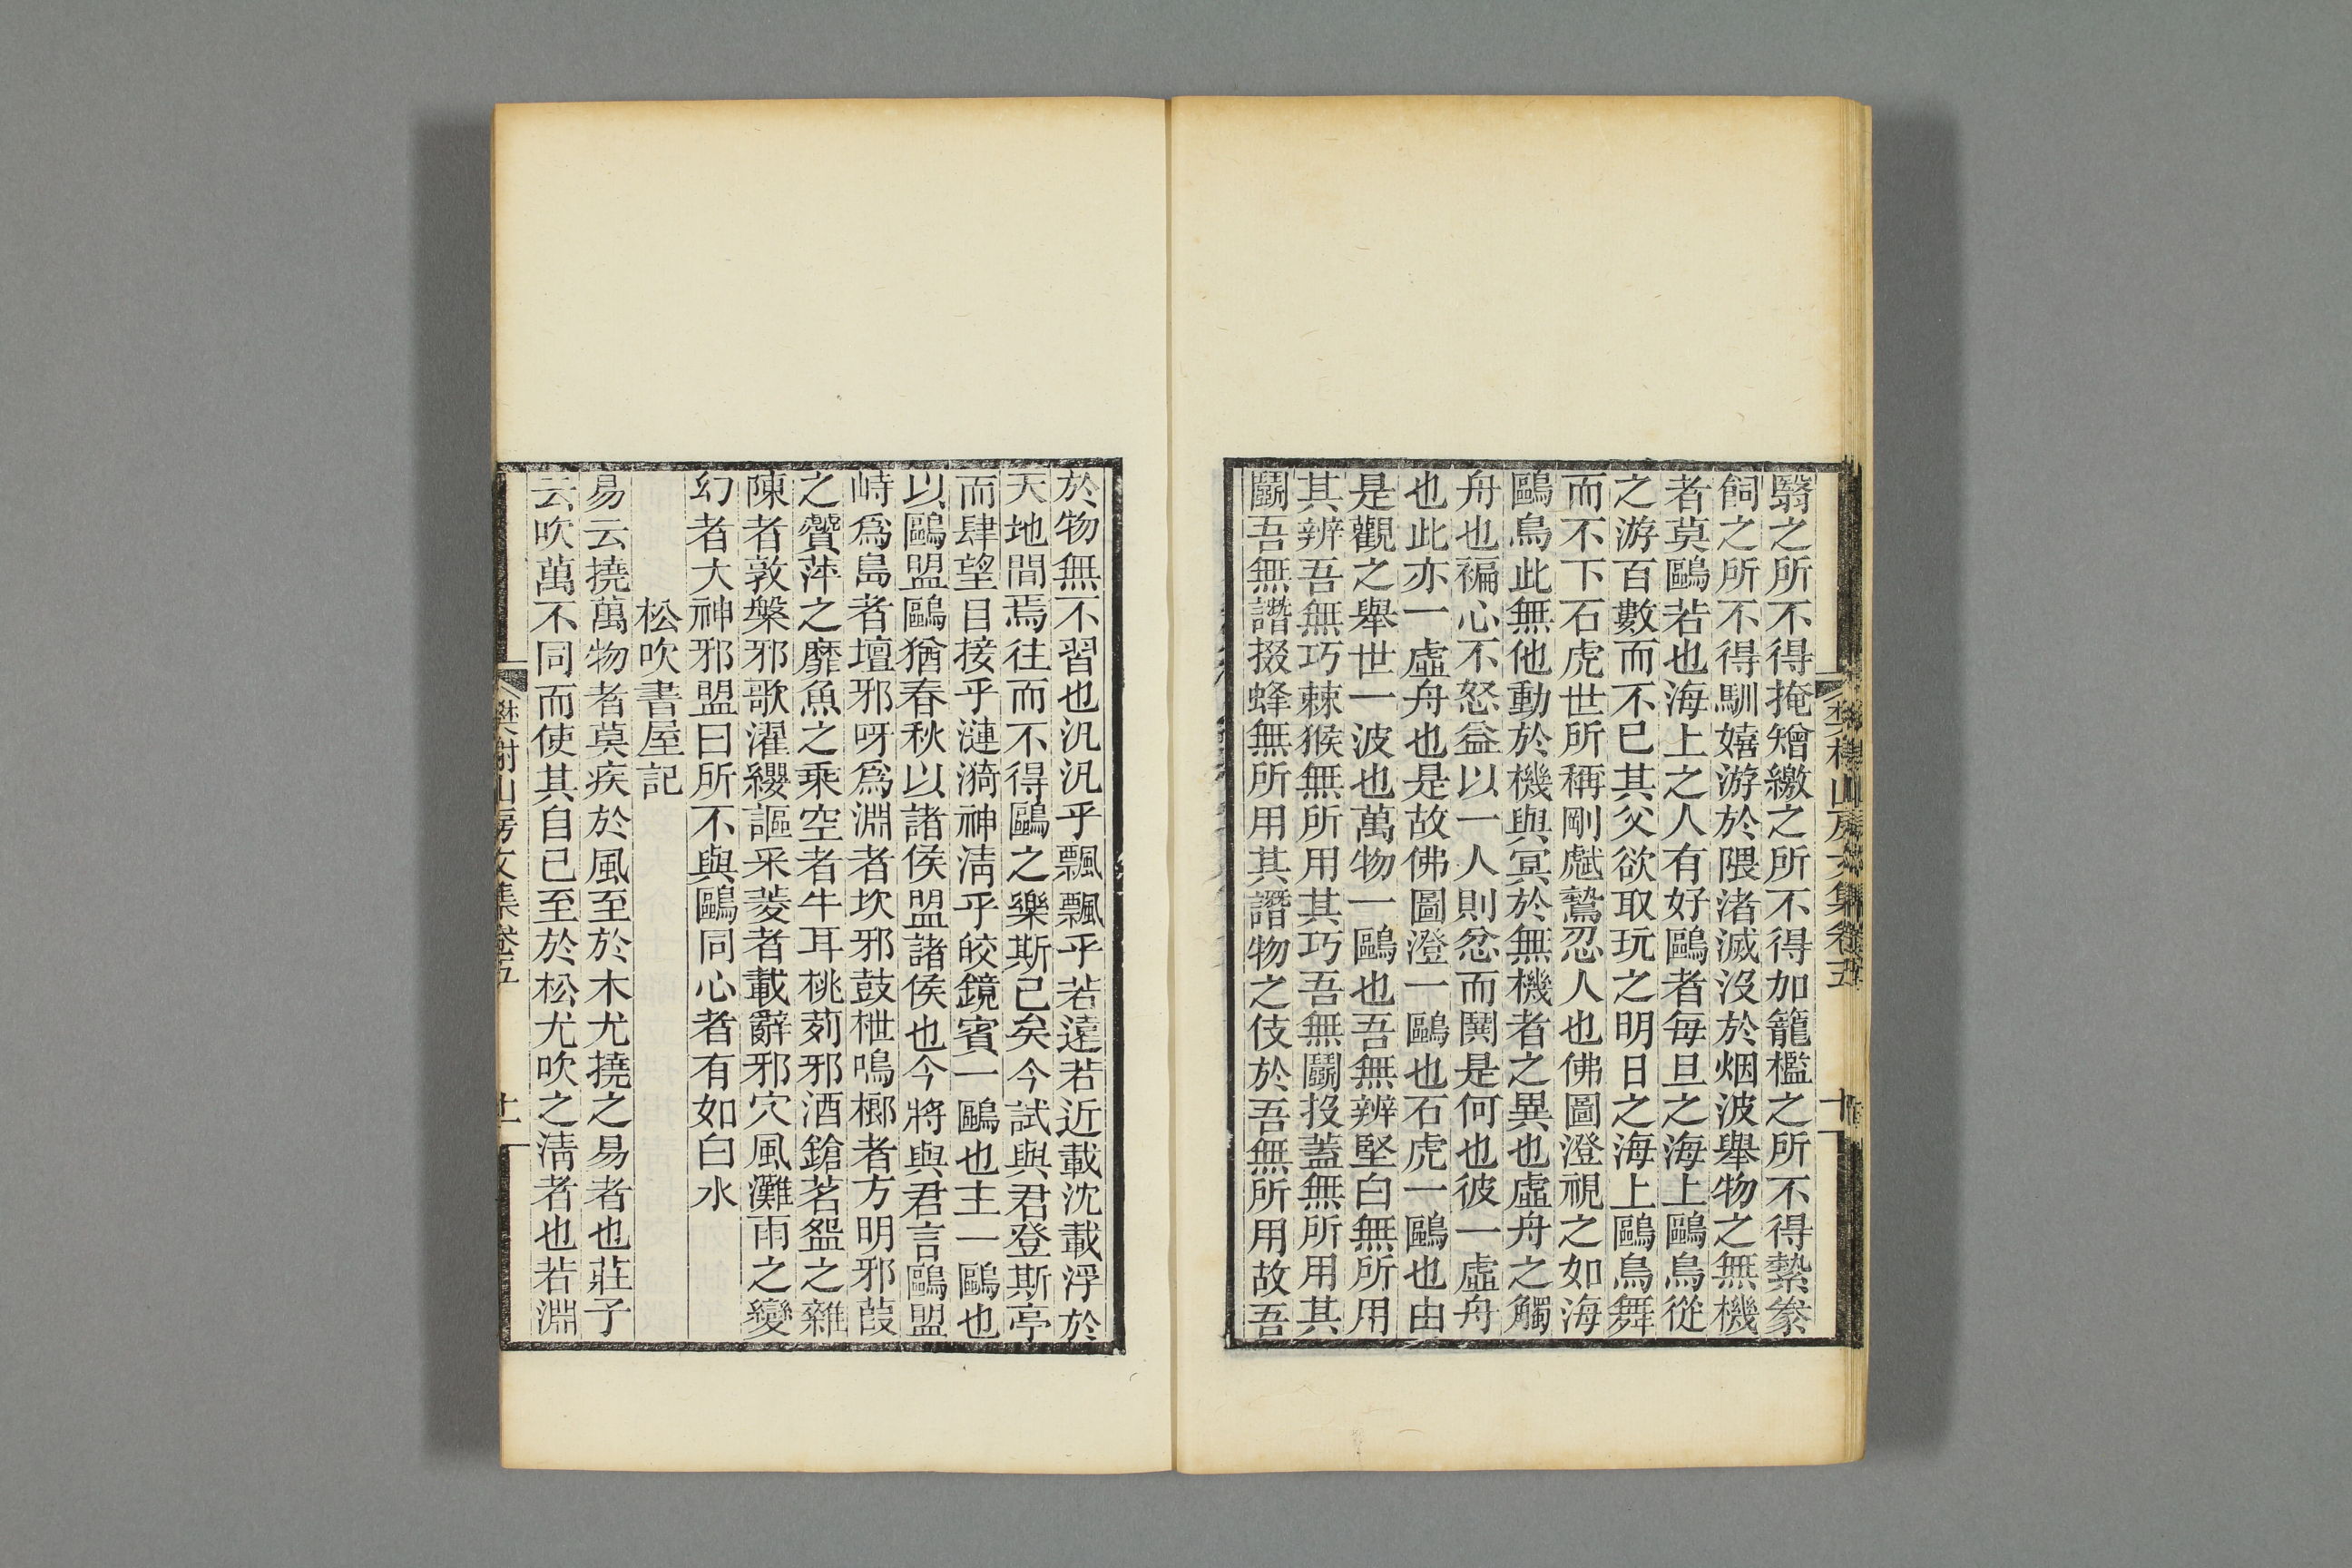 翳之所不得掩矰繳之所不得加籠檻之所不得縶豢
飼之所不得馴嬉游於隈渚滅沒於烟波舉物之無機
者莫鷗若也海上之人有好鷗者每旦之海上鷗鳥從
之游百數而不已其父欲取玩之明日之海上鷗鳥舞
而不下石虎世所稱剛虣鷙忍人也佛圖澄視之如海
鷗鳥此無他動於機與冥於無機者之異也虛舟之觸
舟也褊心不怒益以一人則忿而鬨是何也彼一虛舟
也此亦一虛舟也是故佛圖澄一鷗也石虎一鷗也由
是觀之舉世一波也萬物一鷗也吾無辨堅白無所用
其辨吾無巧棘猴無所用其巧吾無鬭投蓋無所用其
鬭吾無譖掇蜂無所用其譖物之伎於吾無所用故吾
樊榭山房文集卷五
十
於物無不習也汎汎乎飄飄乎若遠若近載沈載浮於
天地間焉往而不得鷗之樂斯已矣今試與君登斯亭
而肆望目接乎漣漪神淸乎皎鏡賓一鷗也主一鷗也
以鷗盟鷗猶春秋以諸侯盟諸侯也今將與君言鷗盟
峙爲島者壇邪呀爲淵者坎邪鼓枻鳴榔者方明邪葭
之贙萍之靡魚之乘空者牛耳桃茢邪酒鎗茗盌之雜
陳者敦槃邪歌濯纓謳采菱者載辭邪穴風灘雨之變
幻者大神邪盟曰所不與鷗同心者有如白水
松吹書屋記
易云撓萬物者莫疾於風至於木尤撓之易者也莊子
云吹萬不同而使其自已至於松尤吹之淸者也若淵
樊榭山房文集卷五
十一